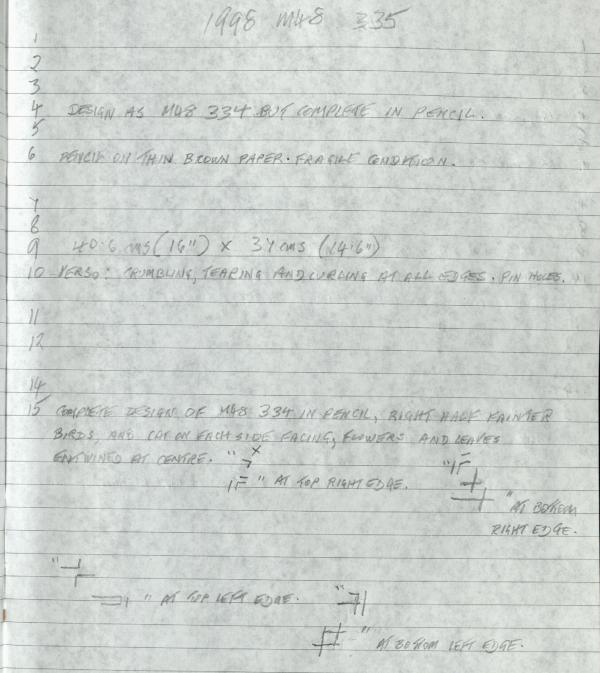 1998 M48 335
1
2
3
4 DESIGN AS M48 334 BUT COMPLETE IN PENCIL.
5
6 PENCIL ON THIN BROWN PAPER. FRAGILE CONDITION.
7
8
9 40.6 cms (16") x 37 cms (14.6")
10 VERSO: CRUMBLING, TEARING AND CURLING AT ALL EDGES. PIN HOLES.
11
12
14
15 COMPLETE DESIGN OF M48 334 IN PENCIL, RIGHT HALF FAINTER
BIRDS, AND CAT ON EACH SIDE FACING, FLOWERS AND LEAVES
ENTWINED AT CENTRE. "
" AT TOP RIGHT EDGE. "
" AT BOTTOM
RIGHT EDGE.
"
" AT TOP LEFT EDGE. "
" AT BOTTOM LEFT EDGE.